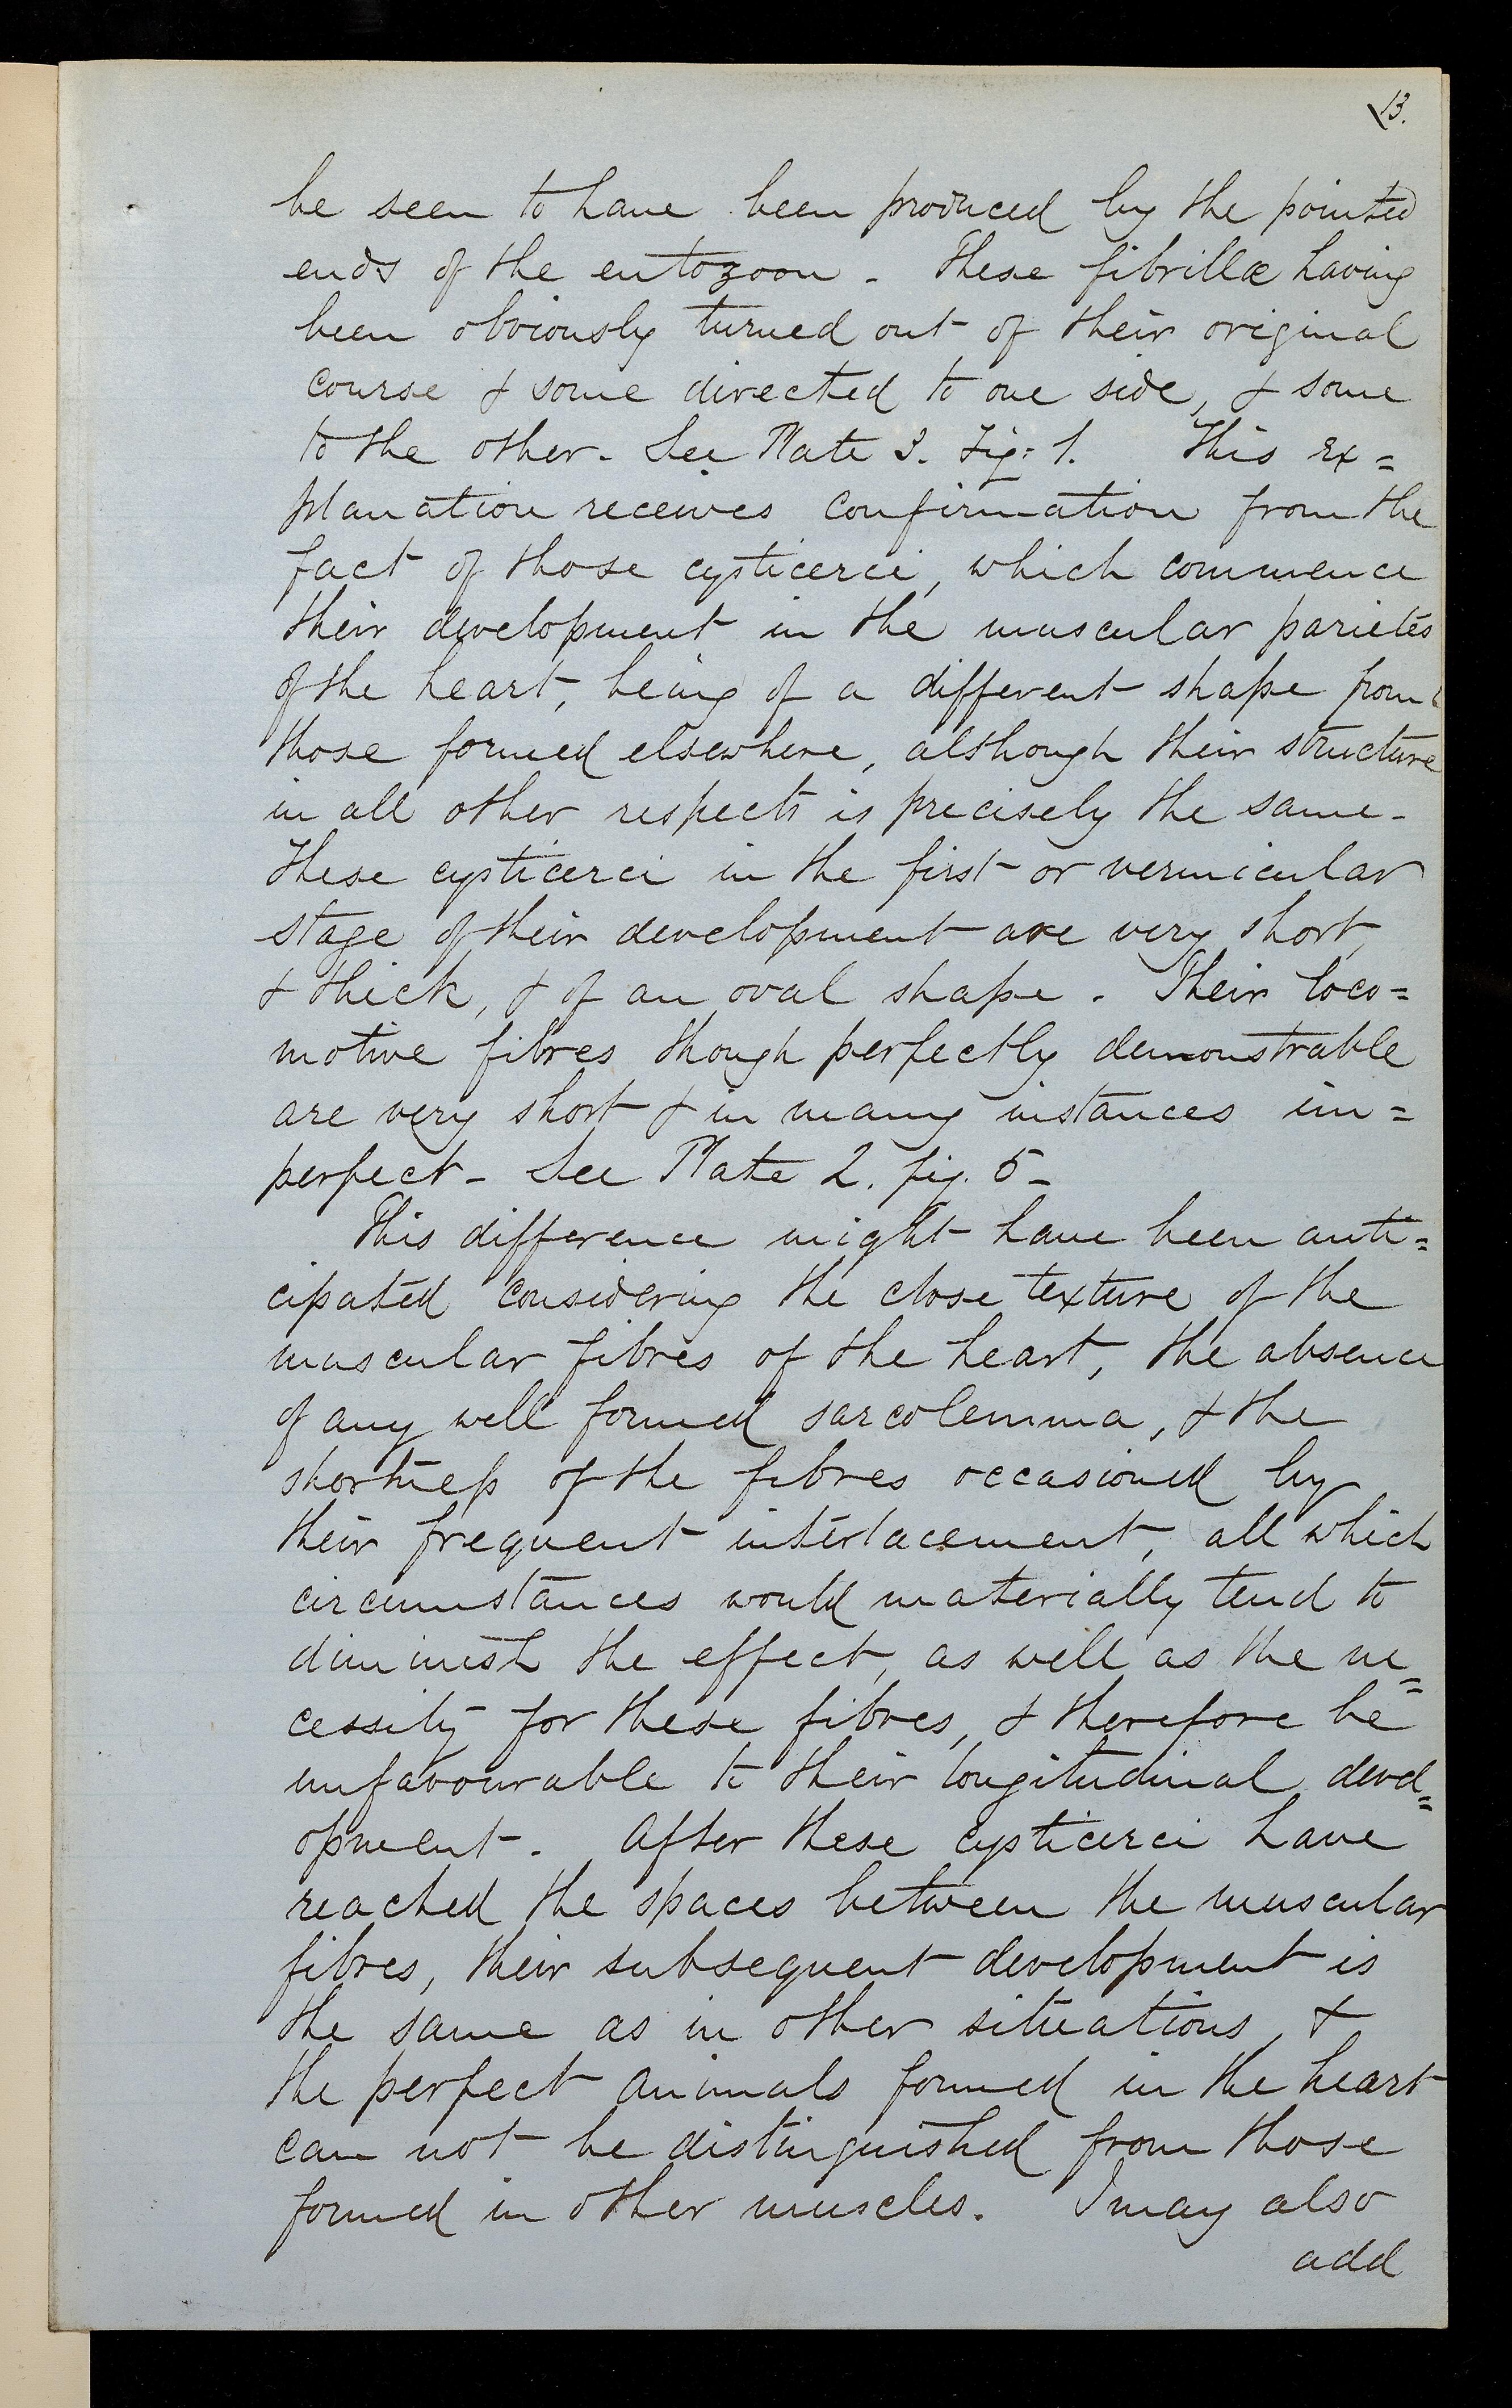 13.
be seen to have been produced by the pointed
ends of the entozoon - These fibrillæ having
been obviously turned out of their original
course & some directed to one side, & some
to the other - See Plate 3. Fig: 1. This ex=
planation receives confirmation from the
fact of those cysticerci, which commence
their development in the muscular parietes
of the heart, being of a different shape from
those formed elsewhere, although their structure
in all other respects is precisely the same -
These cysticerci in the first or vermicular
stage of their development are very short,
& thick, & of an oval shape. Their loco=
motive fibres though perfectly demonstrable
are very short & in many instances im=
perfect - See Plate 2. fig. 5 -
This difference might have been anti=
cipated considering the close texture of the
muscular fibres of the heart, the absence
of any well formed sarcolemma, & the
shortness of the fibres occasioned by
their frequent interlacement, all which
circumstances would materially tend to
diminish the effect, as well as the ne=
cessity for these fibres, & therefore be
unfavourable to their longitudinal devel=
opment. After these cysticerci have
reached the spaces between the muscular
fibres, their subsequent development is
the same as in other situations, &
the perfect animals formed in the heart
can not be distinguished from those
formed in other muscles. I may also
add